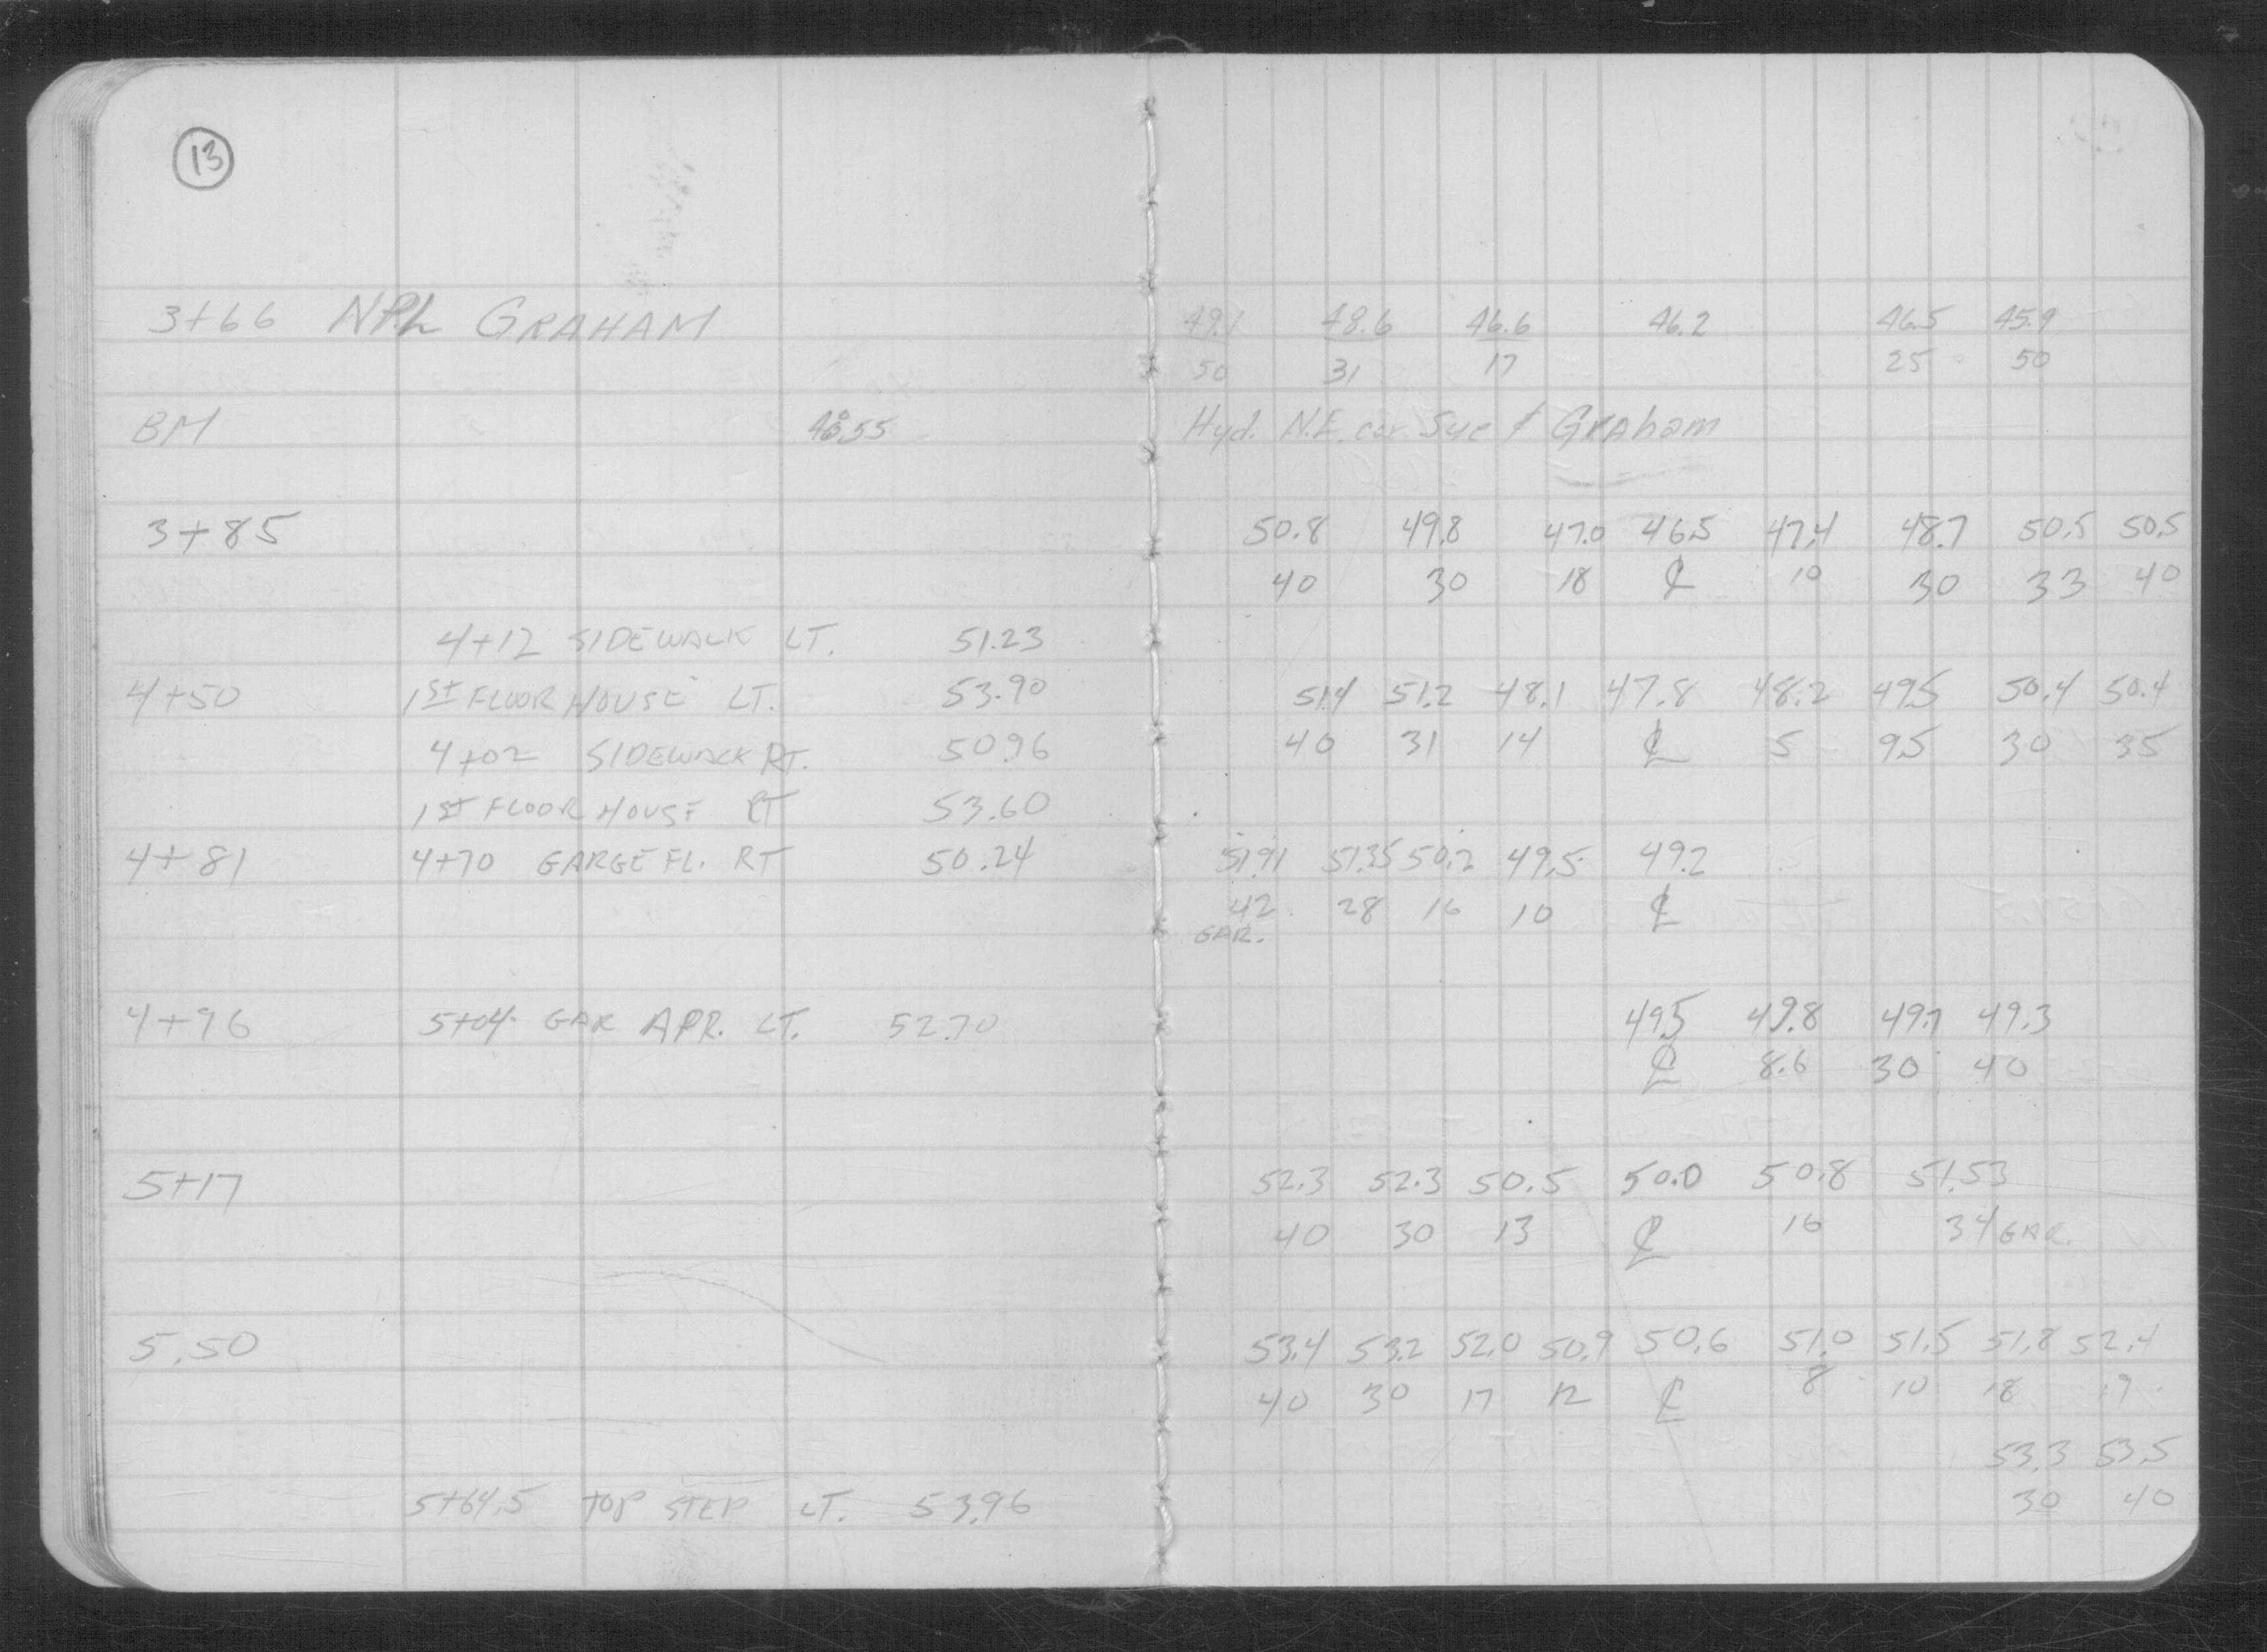 13
3+66 NPL GRAHAM 49.1 48.6 46.6 46.2 46.5 45.9
50 31 17 25 50
BM Hyd. N.E. cor. Syc & Graham
3+85 50.8 49.8 47.0 46.5 47.4 48.7 50.5 50.5
40 30 18 ℄ 10 30 33 40
4+12 SIDEWALK LT. 51.23
4+50 1ST FLOOR HOUSE LT. 53.90 51.4 51.2 48.1 47.8 48.2 49.5 50.4 50.4
4+02 SIDEWALK RT. 50.96 40 31 14 ℄ 5 9.5 30 35
1ST FLOOR HOUSE RT 53.60
4+81 4+70 GARGE FL. RT 50.24 51.91 51.35 50.2 49.5 49.2
42 28 16 10 ℄
GAR.
4+96 5+04 GAR APR. LT. 52.70 49.5 49.8 49.7 49.3
℄ 8.6 30 40
5+17 52.3 52.3 50.5 50.0 50.8 51.53
40 30 13 ℄ 16 34 GAR.
5.50 53.4 53.2 52.0 50.9 50.6 51.0 51.5 51.8 52.4
40 30 17 12 ℄ 8 10 18 19
53.3 53.5
5+64.5 TOP STEP LT. 53.96 30 40